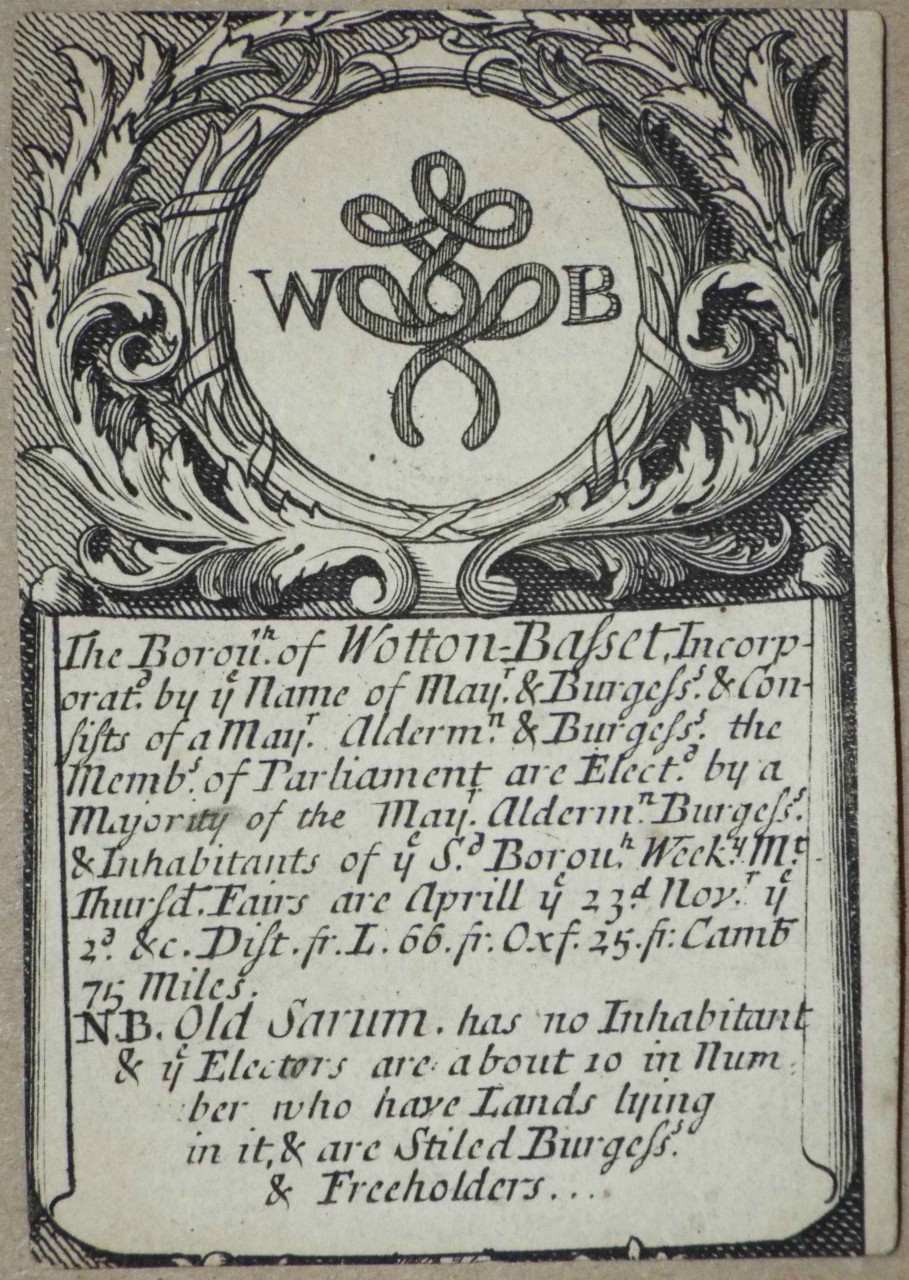 W B
The Borou.ʰ of Wotton=Baſset, Incorp-
orat.ᵈ by yͤ Name of Mayʳ. & Burgeſsˢ. & Con-
ſiſts of a Mayʳ. Aldermⁿ. & Burgeſsˢ. the
Membˢ. of Parliament are Elect.ᵈ by a
Majority of the Mayʳ. Aldermⁿ. Burgeſsˢ.
& Inhabitants of yͤ S.ᵈ Borou.ʰ Week.ʸ Mᵗ.
Thurſd. Fairs are Aprill yͤ 23.ᵈ Nov.ʳ yͤ
2.ᵈ &c. Diſt. fr. L. 66. fr. Oxf. 25. fr: Camb
75 Miles.
N.B. Old Sarum. has no Inhabitant
& yͤ Electors are about 10 in Num
ber who have Lands lying
in it, & are Stiled Burgeſsˢ.
& Freeholders...